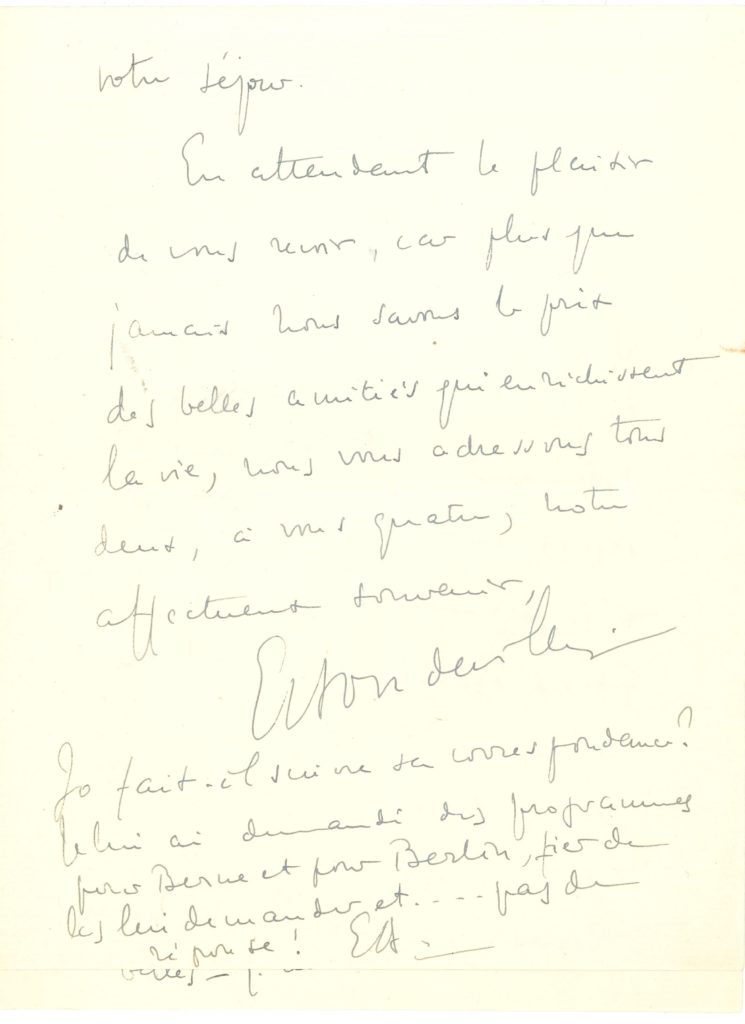 votre séjour.
En attendant le plaisir
de vous revoir, car plus que
jamais nous savons le prix
des belles amitiés qui enrichissent
la vie, nous vous adressons tous
deux, à vous quatre, notre
affectueux souvenir,
Jo fait-il suivre sa correspondance?
Je lui ai demandé des programmes
pour Berne et pour Berlin, fier de
les lui demander et.... pas de
réponse! EH.
belles-